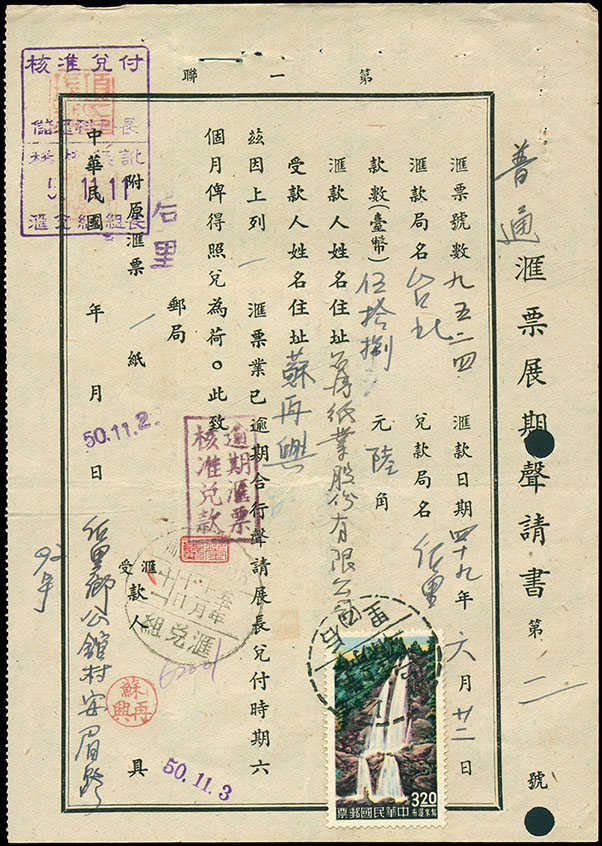 第一聯
普通匯票展期聲請書 第二號
匯票號數 九五二四 匯款日期 四十九年六月廿二日
匯款局名 台北 兌款局名 后里
款數(臺幣) 伍拾捌 元 陸 角
匯款人姓名住址 紙業股份有限公司
受款人姓名住址 蘇再興
茲因上列一匯票業已逾期合行聲請展長兌付時期六
個月俾得照兌為荷。此致
后里 郵局
附原匯票一紙
匯
受款人 具
蘇再興
后里鄉公館村安眉路
92号
中華民國 年 月 日
50.11.2.
50.11.3
核准兌付
儲匯科科長
5 11.11
匯兌組組長
逾期匯票
核准兌款
匯兌組
中華民國郵票
320